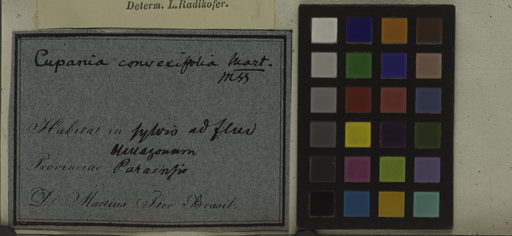 Determ. L. Radlkofer.
Cupania convexifolia Mart.
Mss
Habitat in sylvis ad fluv
Amazonum
Provinciae Paraensis
Dr. Martius Iter Brasil.